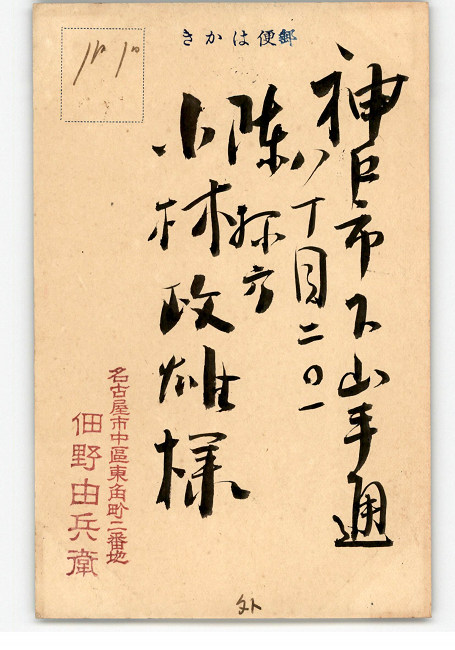 郵便はかき
神戸市下山手通
八丁目二〇一
陳
方
小林政雄様
名古屋市中區東角町二番地
佃野由兵衛
外